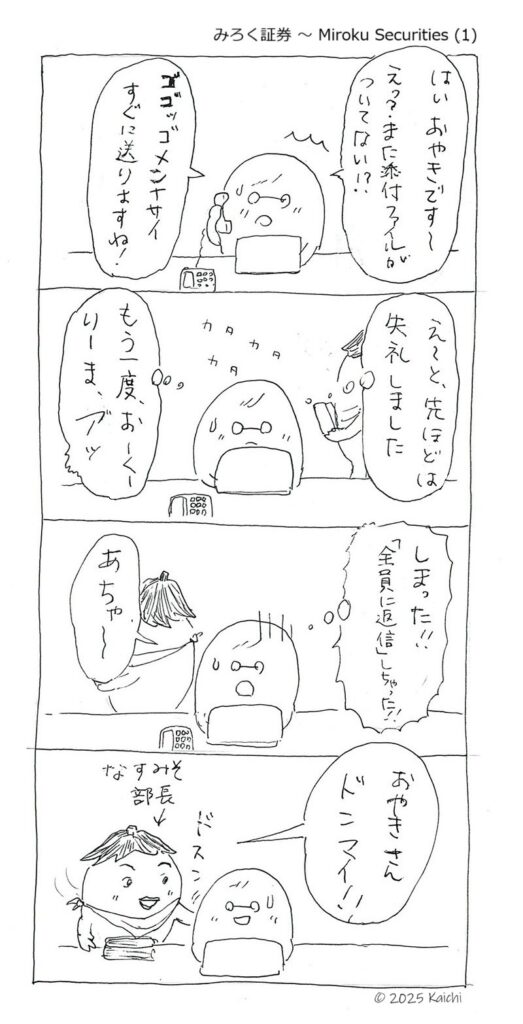 みろく証券 ～ Miroku Securities (1)
はい おやきです〜
えっ?・また添付ファイルが
ついてない!?
ゴゴッゴメンナサイ
すぐに送りますね!
え〜と、先ほどは
失礼しました
カタ
カタ
カタ
もう一度、おーくー
りーま、アッ
しまった!!
「全員に返信」しちゃった!!
あちゃ〜
おやきさん
ドンマイ!!
なすみそ
部長
ドスン
© 2025 Kaichi